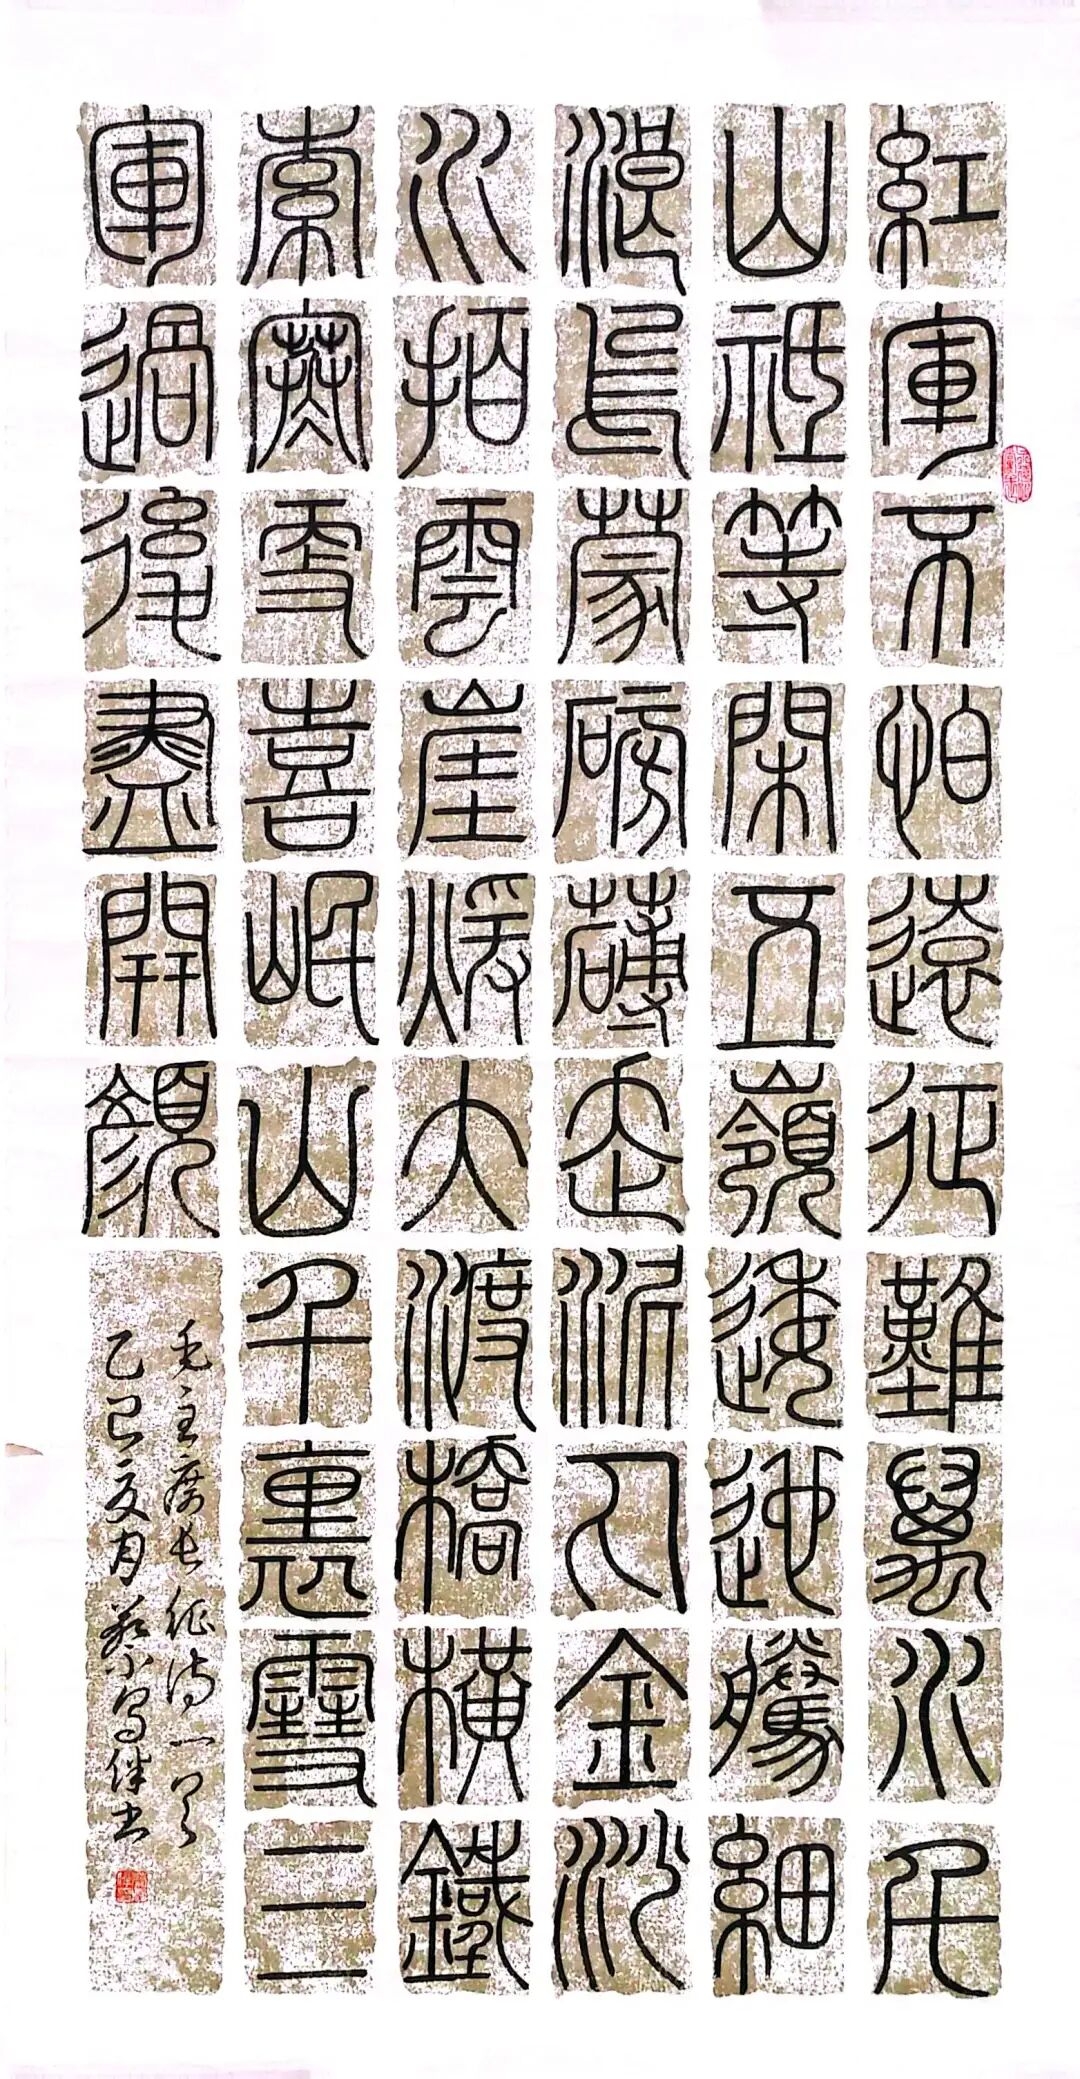 紅軍不怕遠征難萬水千
山祇等閑五嶺逶迤騰細
浪烏蒙磅礴走泥丸金沙
水拍雲崖煖大渡橋橫鐵
索寒更喜岷山千裏雪三
軍過後盡開顏
毛主席长征诗一首
乙巳夏月 书